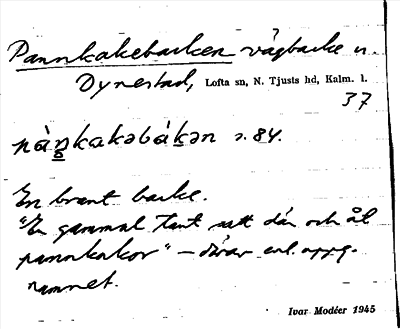 Pannkakebacken vägbacke n.
Dynestad, Lofta sn, N. Tjusts hd, Kalm. l.
37
pàŋkakəbákən s. 84.
En brant backe.
"En gammal tant satt där och åt
pannkakor" – därav enl. uppg.
namnet.
Ivar Modéer 1945